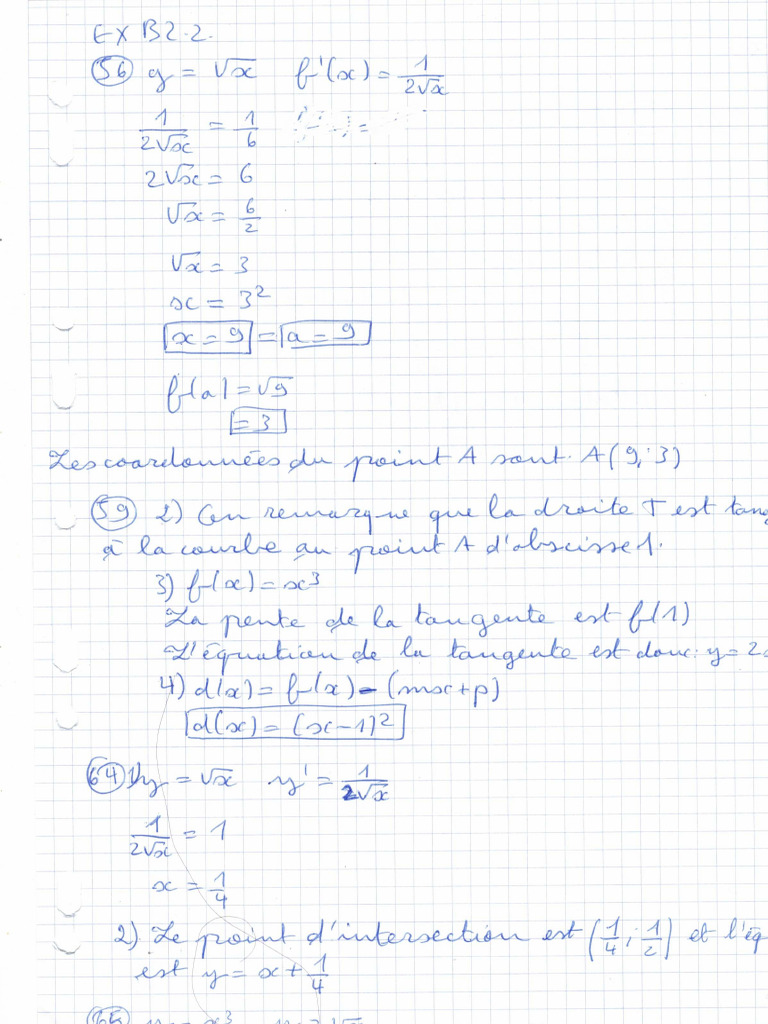 EX B2.2.
56 y = √x f'(x) = 1/(2√x)
1/(2√x) = 1/6
2√x = 6
√x = 6/2
√x = 3
x = 3²
x = 9 = a = 9
f(a) = √9
= 3
Les coordonnées du point A sont. A(9; 3)
59 2) On remarque que la droite T est tang
à la courbe au point A d'abscisse 1.
3) f(x) = x³
La pente de la tangente est f(1)
L'équation de la tangente est donc: y = 2
4) d(x) = f(x) - (mx+p)
d(x) = (x-1)²
64 1) y = √x y' = 1/(2√x)
1/(2√x) = 1
x = 1/4
2) Le point d'intersection est (1/4; 1/2) et l'éq
est y = x + 1/4
65